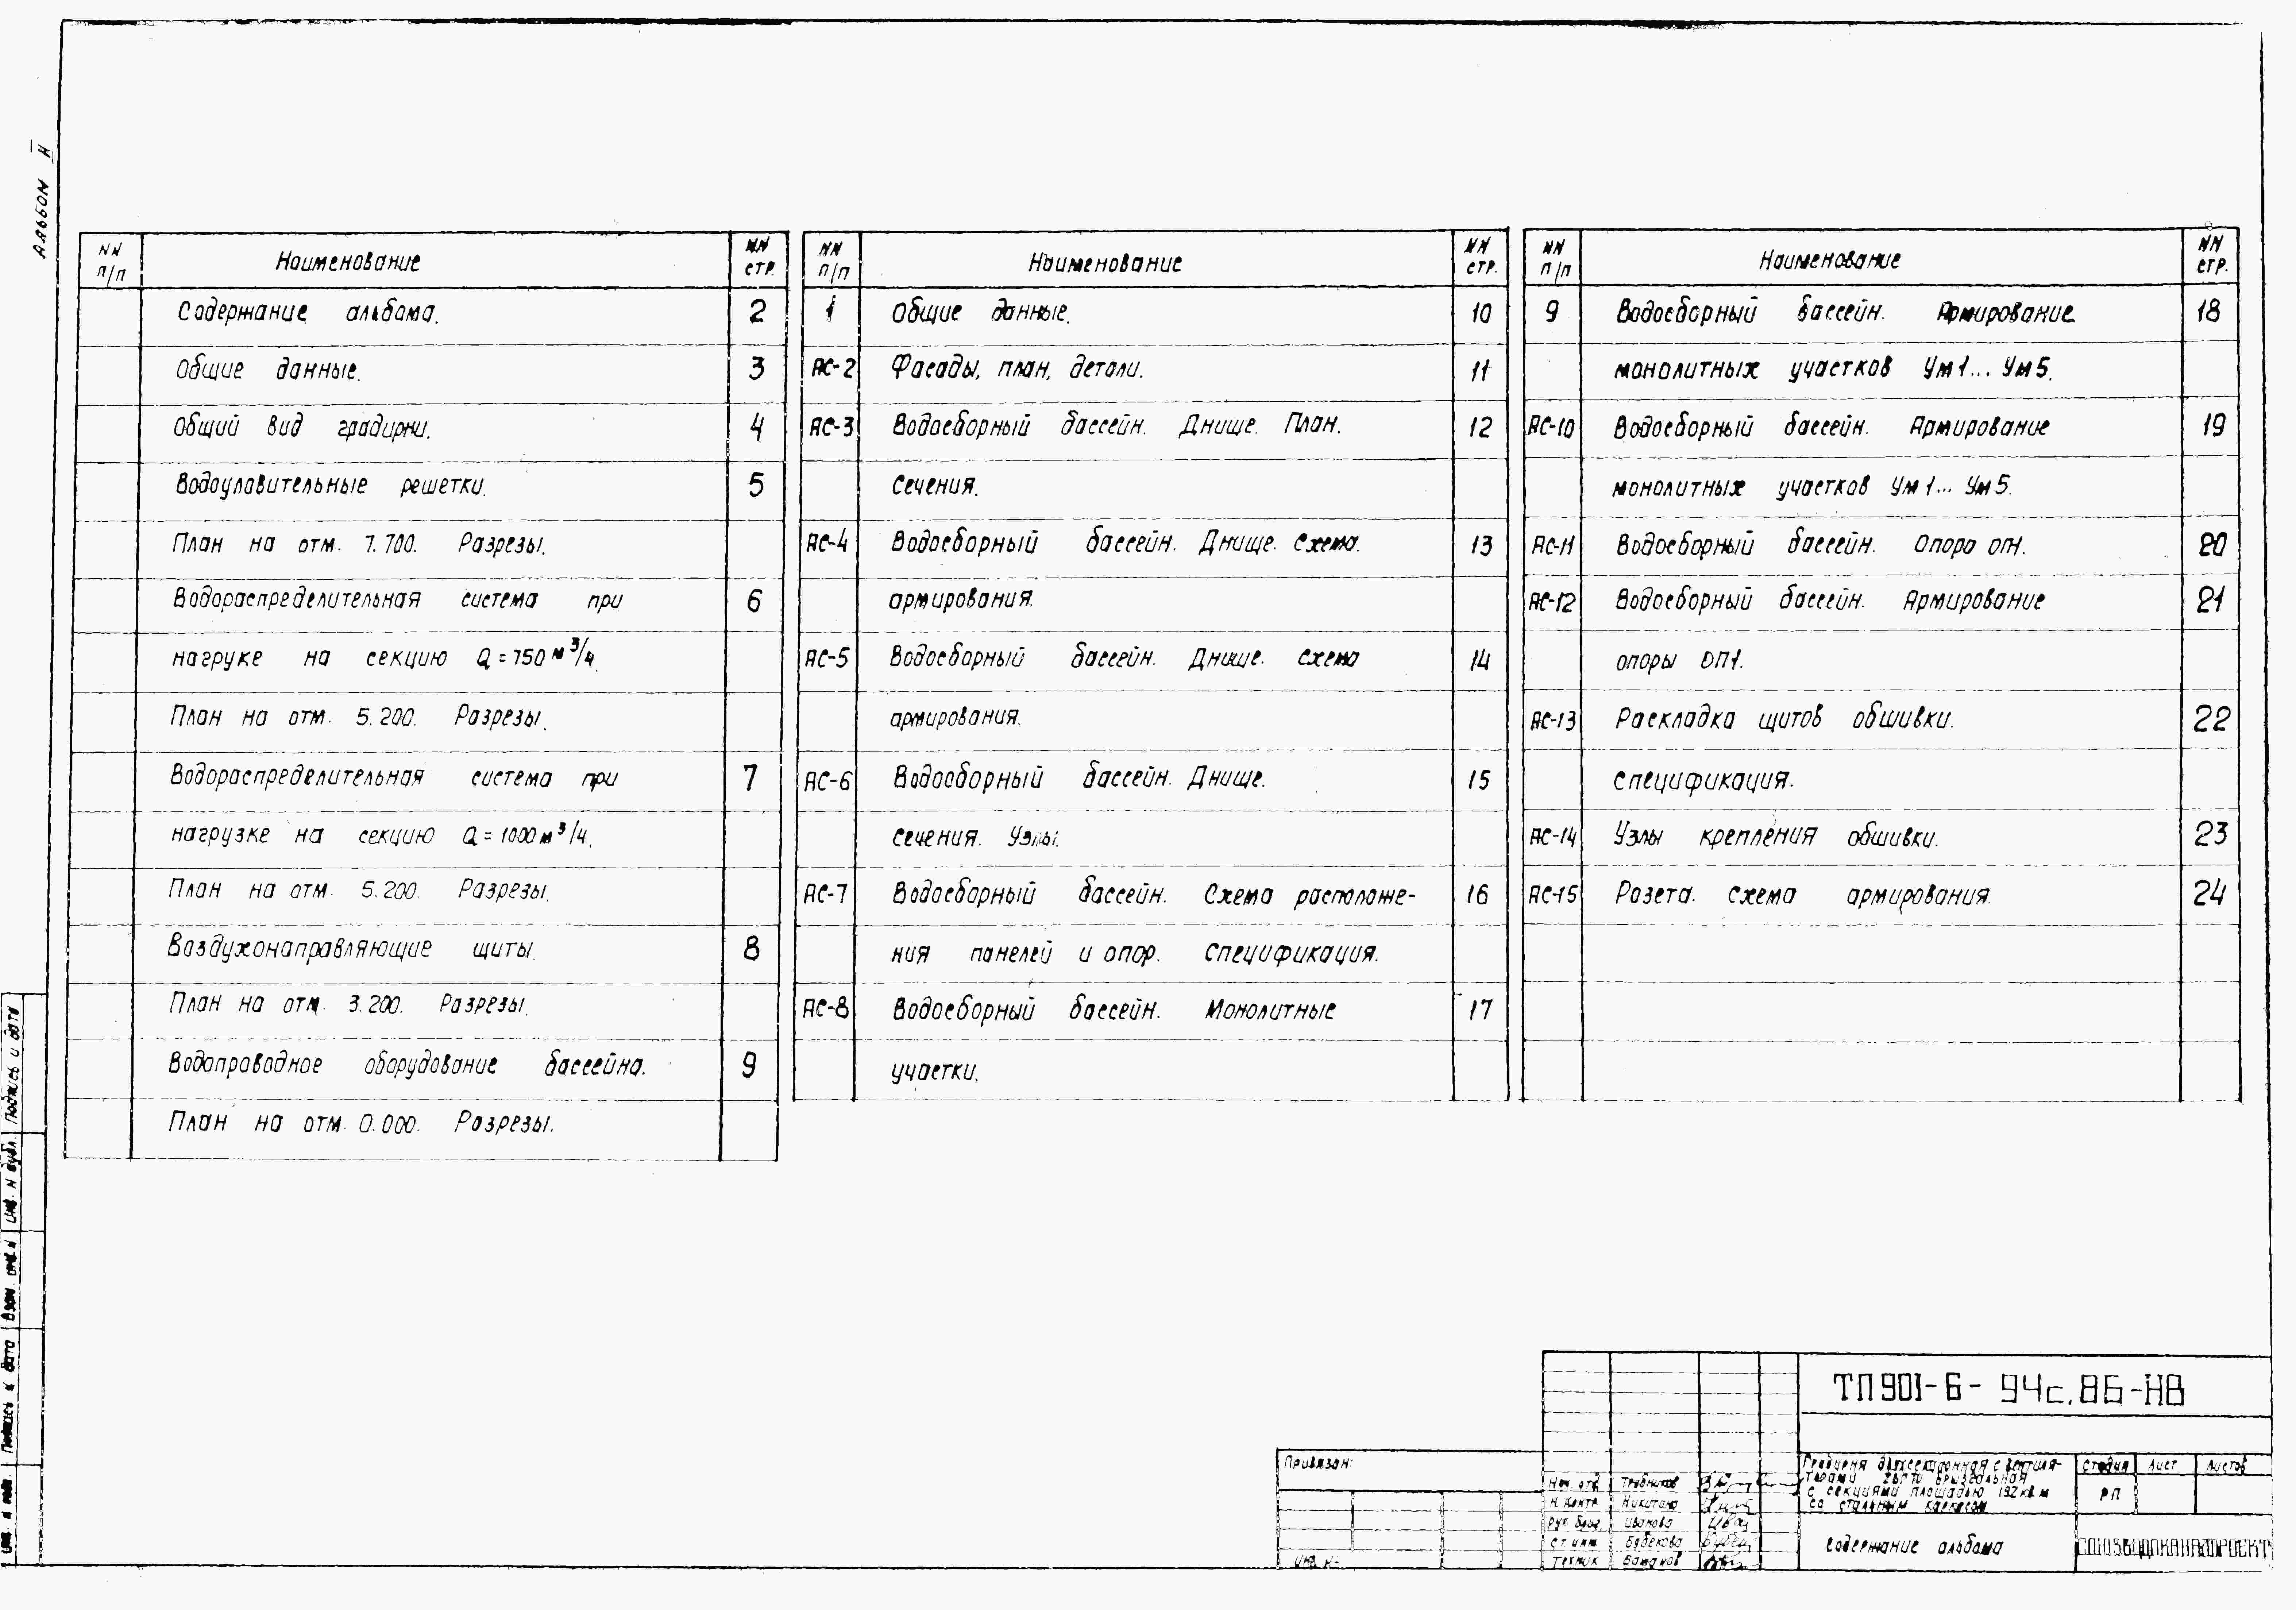 Альбом II
NN п/п Наименование NN стр.
Содержание альбома. 2
Общие данные. 3
Общий вид градирни. 4
Водоуловительные решетки. 5
План на отм. 7.700. Разрезы.
Водораспределительная система при 6
нагруке на секцию Q = 750 м³/ч.
План на отм. 5.200. Разрезы.
Водораспределительная система при 7
нагрузке на секцию Q = 1000 м³/ч.
План на отм. 5.200. Разрезы.
Воздухонаправляющие щиты. 8
План на отм. 3.200. Разрезы.
Водопроводное оборудование бассейна. 9
План на отм. 0.000. Разрезы.
NN п/п Наименование NN стр.
1 Общие данные. 10
АС-2 Фасады, план, детали. 11
АС-3 Водосборный бассейн. Днище. План. 12
Сечения.
АС-4 Водосборный бассейн. Днище. Схема. 13
армирования.
АС-5 Водосборный бассейн. Днище. Схема 14
армирования.
АС-6 Водосборный бассейн. Днище. 15
Сечения. Узлы.
АС-7 Водосборный бассейн. Схема расположе- 16
ния панелей и опор. Спецификация.
АС-8 Водосборный бассейн. Монолитные 17
участки.
NN п/п Наименование NN стр.
9 Водосборный бассейн. Армирование 18
монолитных участков Ум1... Ум5.
АС-10 Водосборный бассейн. Армирование 19
монолитных участков Ум1... Ум5.
АС-11 Водосборный бассейн. Опора оп1. 20
АС-12 Водосборный бассейн. Армирование 21
опоры ОП1.
АС-13 Раскладка щитов обшивки. 22
Спецификация.
АС-14 Узлы крепления обшивки. 23
АС-15 Розета. Схема армирования. 24
ТП 901-6-94с.86-НВ
Привязан:
Инв. N:
Нач. отд Трубников
Н. контр Никитина
Рук. бриг. Иванова
Ст. инж Бабекова
Техник
Градирня двухсекционная с вентиля-
торами 2ВГ70 брызгальная
с секциями площадью 192 кв.м
со стальным каркасом
Стадия Лист Листов
РП
Содержание альбома
СОЮЗВОДОКАНАЛПРОЕКТ
Подпись и дата
Инв. N дубл.
Взам. инв. N
Подпись и дата
Инв. N подл.